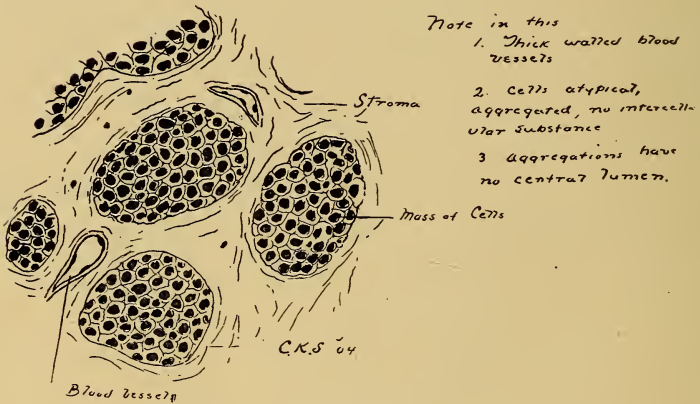 Note in this
1. Thick walled blood
vessels
2. Cells atypical,
aggregated, no intercell-
ular substance
3 aggregations have
no central lumen.
Stroma
Mass of Cells
C.K.S '04
Blood vessels